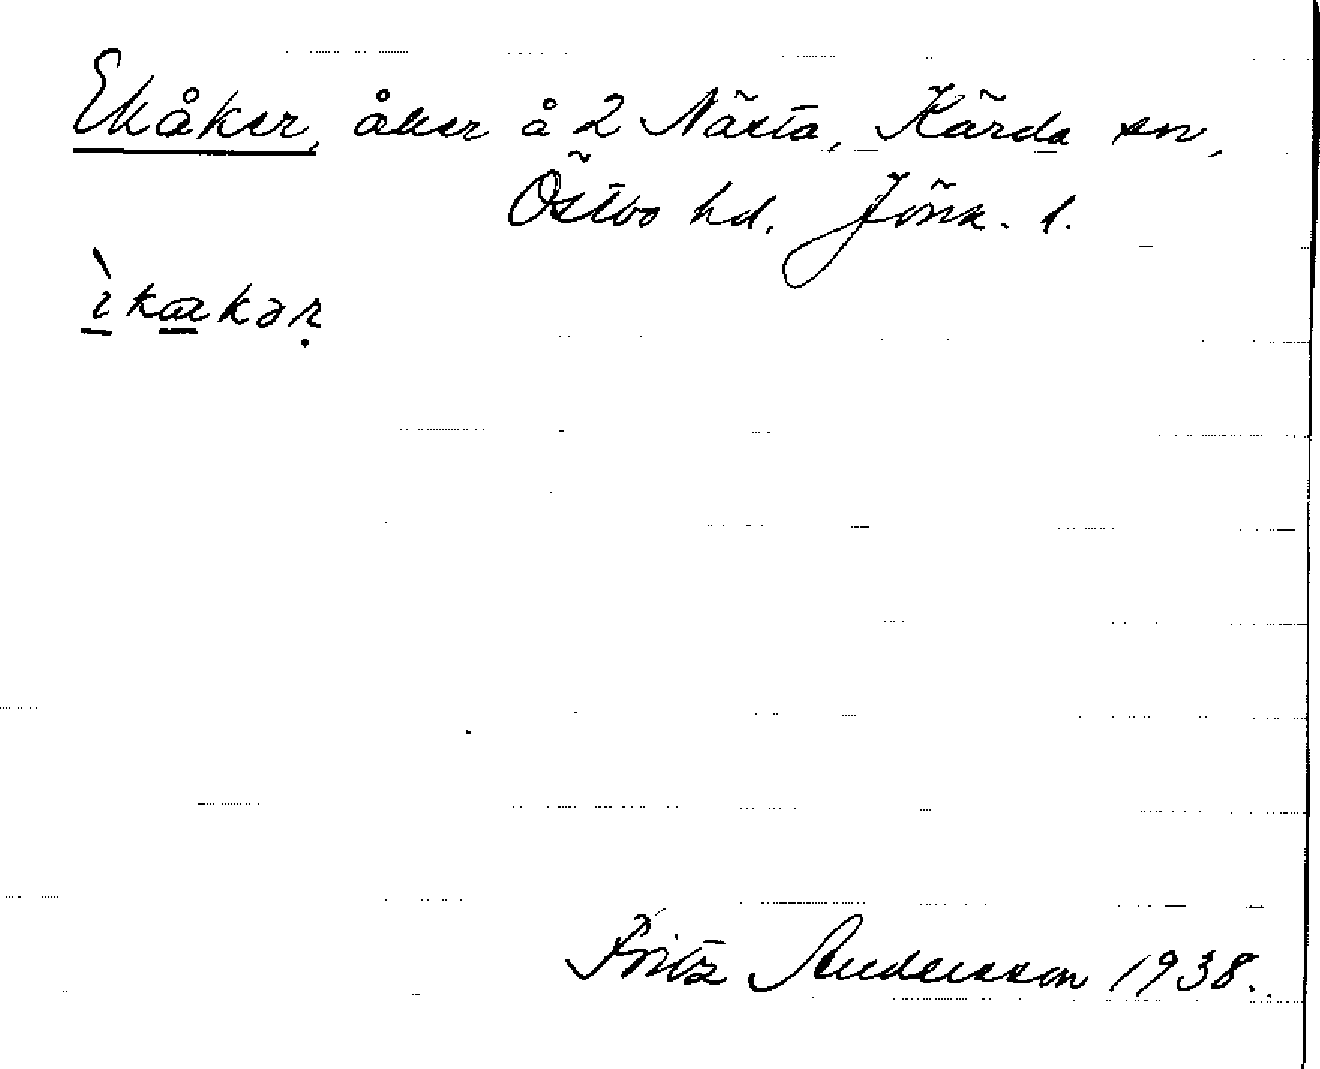 Ekåker, åker å 2 Nästa, Kärda sn,
Östbo hd. Jönk. l.
ìkakər
Fritz Andersson 1938.